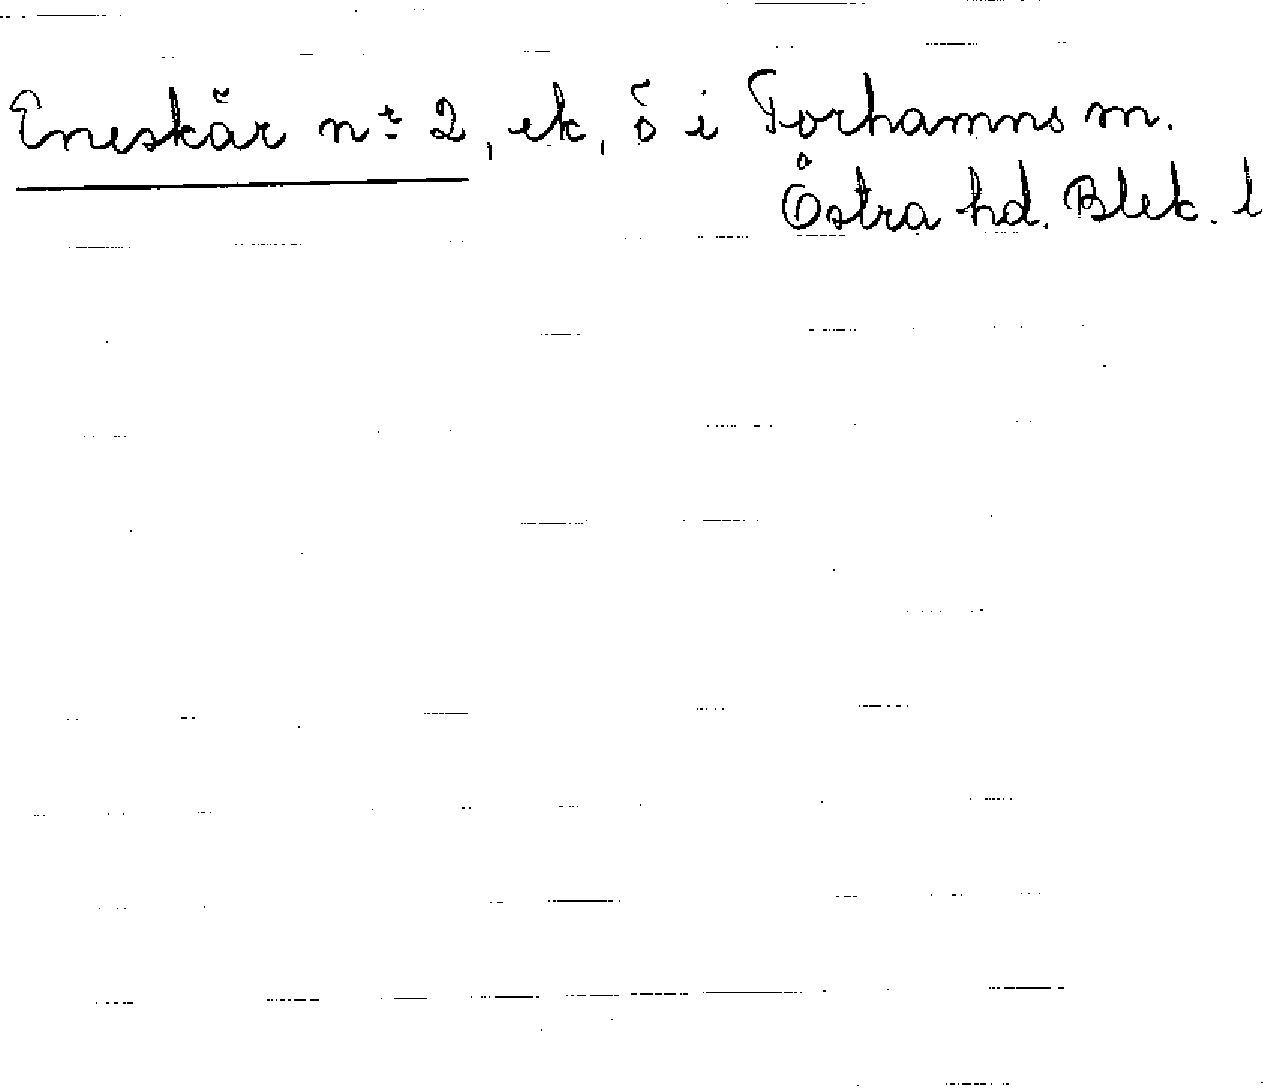 Eneskär nr 2, ek, ö i Torhamns sn.
Östra hd. Blek. l